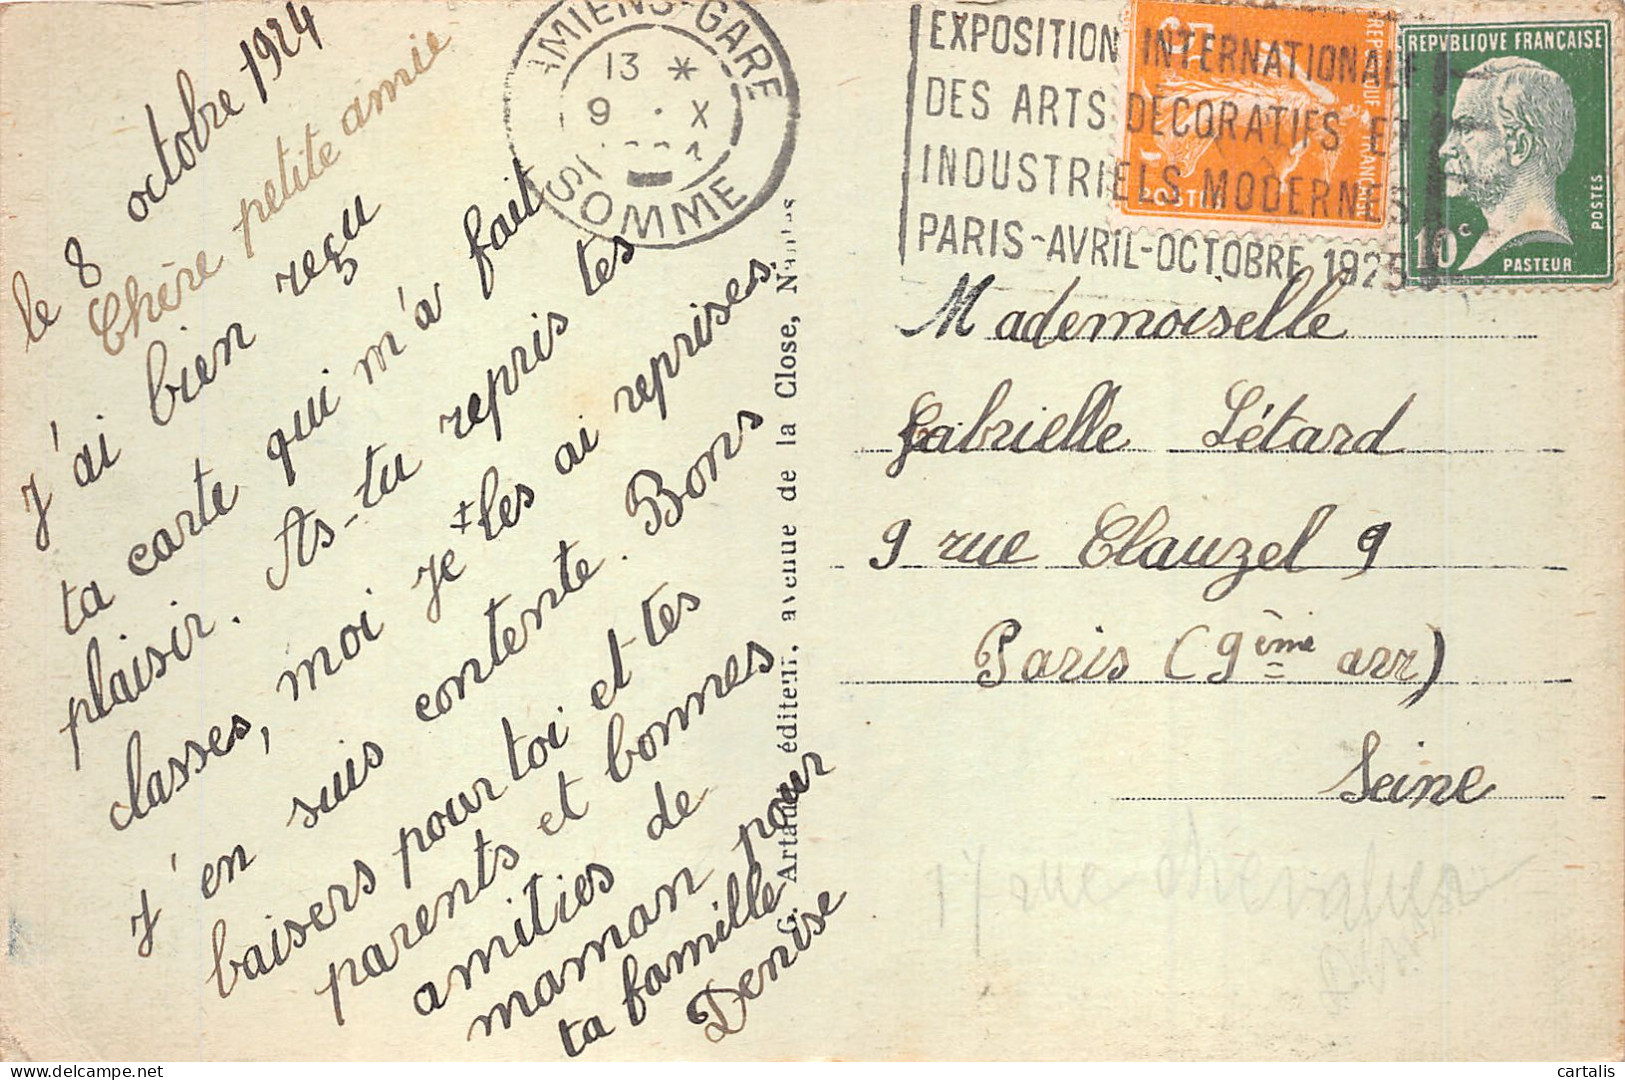 le 8 octobre 1924
Chère petite amie
J'ai bien reçu
ta carte qui m'a fait
plaisir. As-tu repris tes
classes, moi je les ai reprises
j'en suis contente. Bons
baisers pour toi et tes
parents et bonnes
amitiés de
maman pour
ta famille
Denise
AMIENS-GARE
13 *
9 . X
SOMME
EXPOSITION INTERNATIONALE
DES ARTS DÉCORATIFS ET
INDUSTRIELS MODERNES
PARIS-AVRIL-OCTOBRE 1925
REPVBLIQVE FRANÇAISE
10 c
POSTES
PASTEUR
Artaud éditeur, avenue de la Close, Nantes
Mademoiselle
Gabrielle Létard
9 rue Clauzel 9
Paris (9ème arr)
Seine
17 rue
cartalis